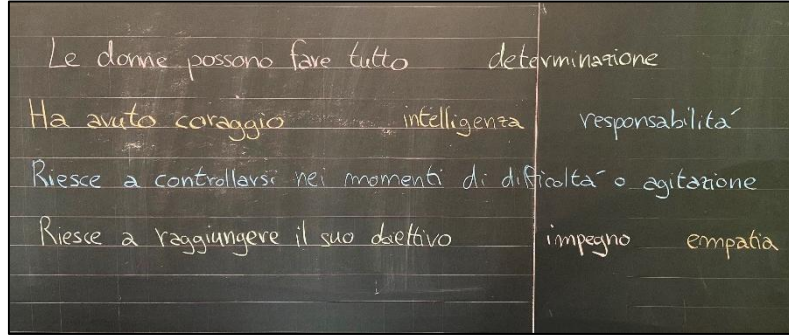 Le donne possono fare tutto determinazione
Ha avuto coraggio intelligenza responsabilitá
Riesce a controllarsi nei momenti di difficoltá o agitazione
Riesce a raggiungere il suo obiettivo impegno empatia